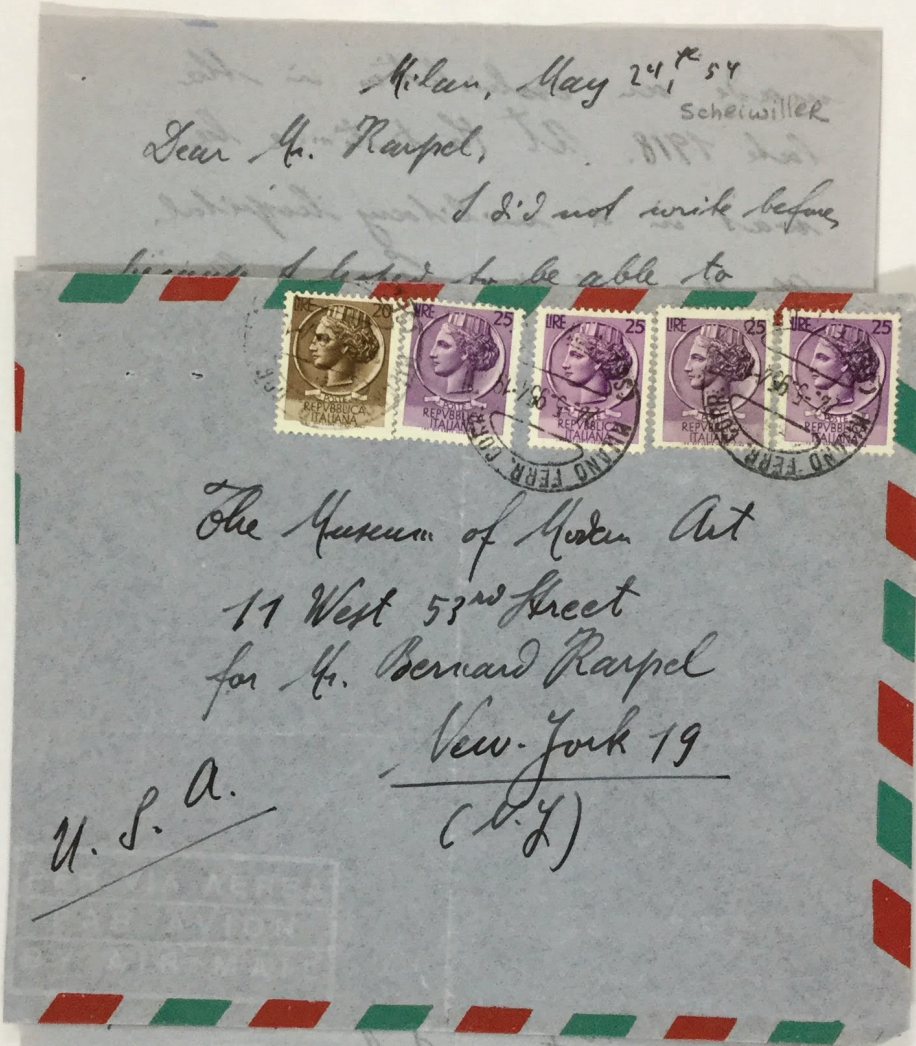 Milan, May 24,th 54
Scheiwiller
Dear Mr. Karpel,
I did not write before,
because I hoped to be able to
LIRE 20
POSTE
REPVBBLICA
ITALIANA
LIRE 25
POSTE
REPVBBLICA
ITALIANA
LIRE 25
POSTE
REPVBBLICA
ITALIANA
LIRE 25
POSTE
REPVBBLICA
ITALIANA
LIRE 25
POSTE
REPVBBLICA
ITALIANA
MILANO FERR. CORR.
MILANO FERR. CORR.
The Museum of Modern Art
11 West 53rd Street
for Mr. Bernard Karpel
New-York 19
(N.Y)
U. S. A.
PER VIA AEREA
PAR AVION
BY AIR MAIL